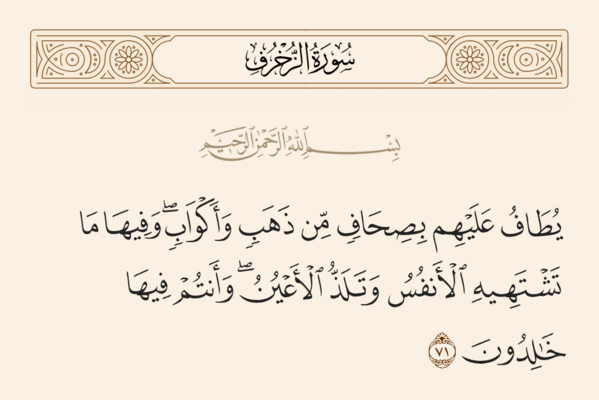 سُورَةُ الزُّخْرُفِ
بِسْمِ ٱللَّهِ ٱلرَّحْمَٰنِ ٱلرَّحِيمِ
يُطَافُ عَلَيْهِم بِصِحَافٍ مِّن ذَهَبٍ وَأَكْوَابٍ ۖ وَفِيهَا مَا
تَشْتَهِيهِ ٱلْأَنفُسُ وَتَلَذُّ ٱلْأَعْيُنُ ۖ وَأَنتُمْ فِيهَا
خَٰلِدُونَ ٧١